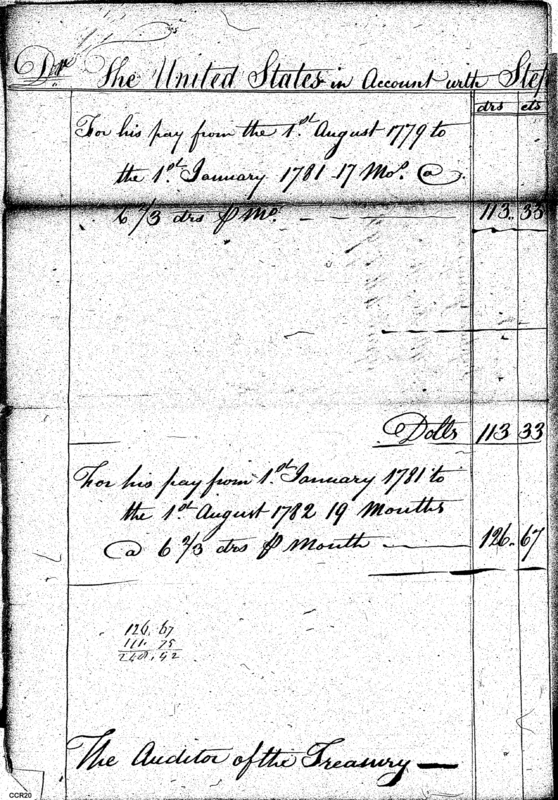 Dr The United States in Account with Step
drs cts
For his pay from the 1st August 1779 to
the 1st January 1781 17 Mos. @
6 2/3 drs ⅌ Mo. 113. 33
Dolls 113 33
For his pay from 1st January 1781 to
the 1st August 1782 19 Months
@ 6 2/3 drs ⅌ Month 126. 67
126. 67
111. 75
The Auditor of the Treasury
CCR20